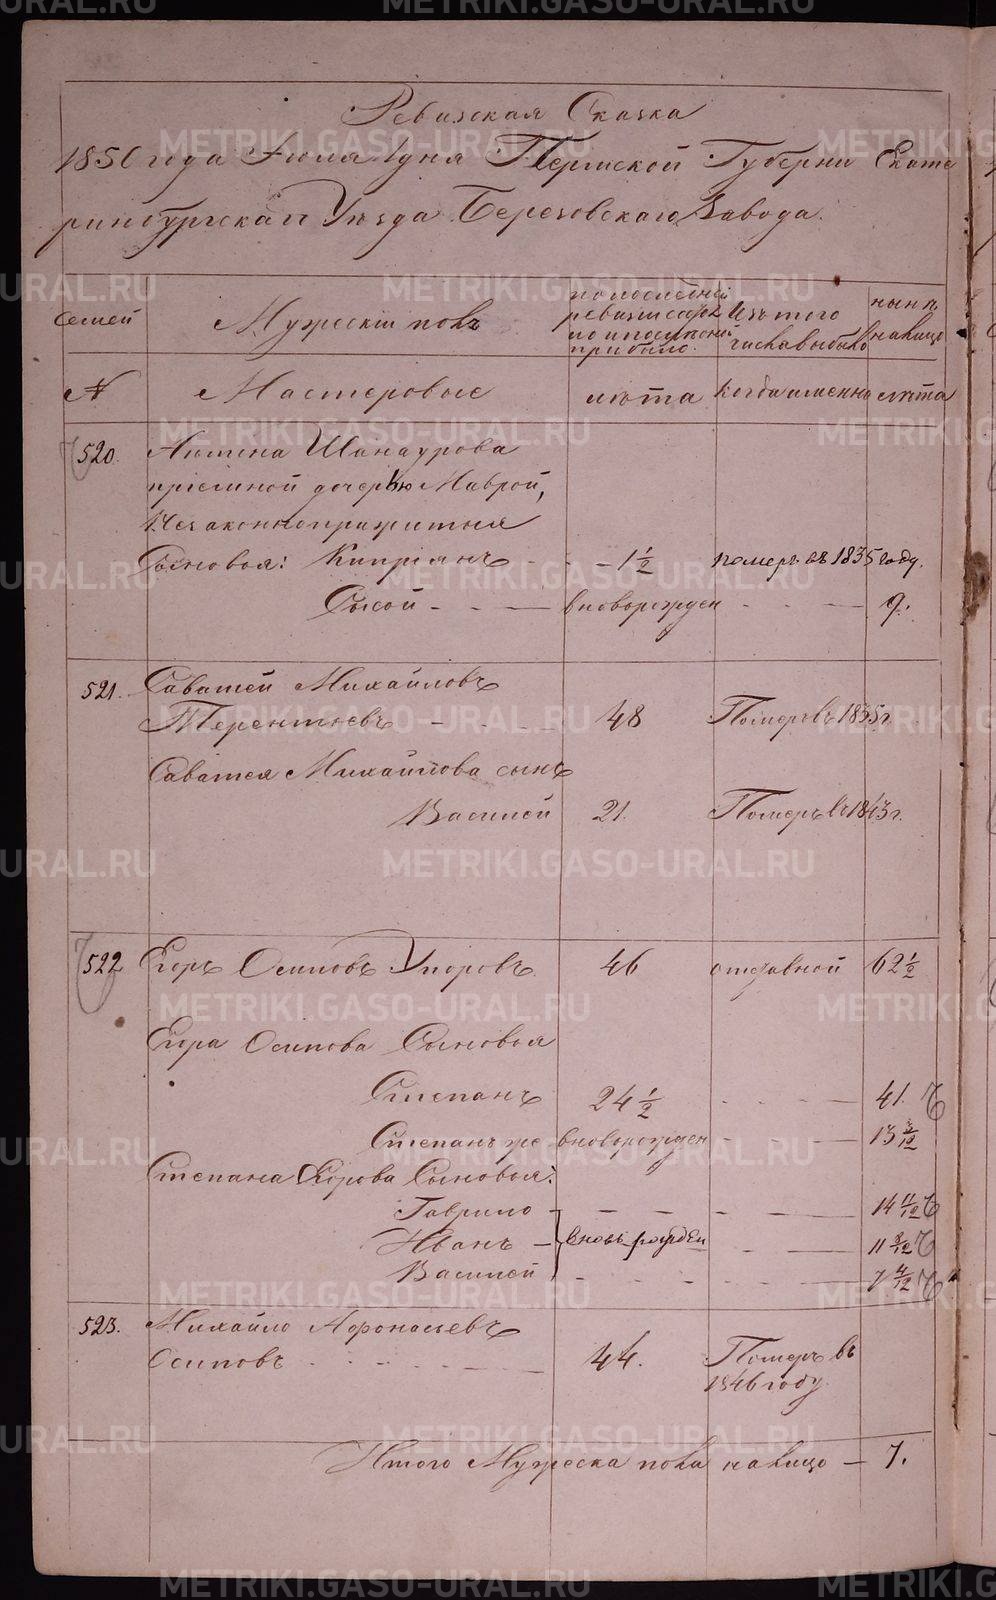 Ревизская Сказка
1850 года Июля 1 дня Пермской Губерни Екате
ринбургскаго Уезда Березовскаго Завода.
Семей
Мужескiй полъ
по последней ревизiи состояло и после оной прибыло.
Изъ того числа выбыло
ныне на лицо
№ Мастеровые лета когда именно лета
520. Шанаурова
дочерью Маврой,
Незаконноприжитыя
Сыновья: Кипрiянъ - - 1 1/2 померъ въ 1835 году.
Сысой - - - вноворожден - - - 9.
521. Саватей Михайловъ
Терентьевъ - - - 48 Померъ въ 1835 г.
Саватея Михайлова сынъ
Василей 21. Померъ въ 1843 г.
522 Егоръ Осиповъ Упоровъ 46 отставной 62 1/2
Егора Осипова Сыновья
Степанъ 24 1/2 - - - 41.
Степанъ же вноворожден - - - 13 3/12
Степана Егорова Сыновья:
Гаврило - - - - 14 11/12
Иванъ - вновь рожден - - 11 8/12
Василей - - - - 7 4/12
523. Михайло Афонасьевъ
Осиповъ - - - 44. Померъ въ
1846 году.
Итого Мужеска пола на лицо - 7.
METRIKI.GASO-URAL.RU